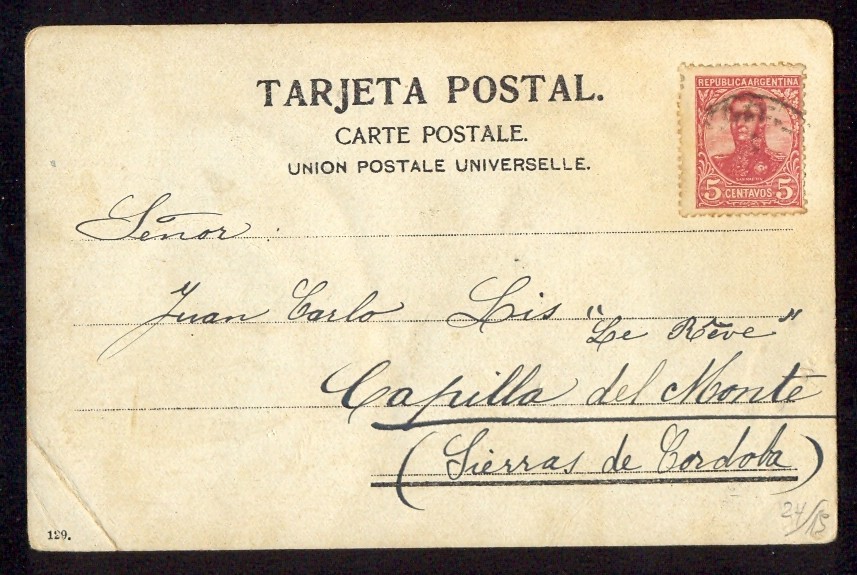 TARJETA POSTAL.
CARTE POSTALE.
UNION POSTALE UNIVERSELLE.
REPUBLICA ARGENTINA
5 CENTAVOS 5
Señor
Juan Carlo Lis "Le Rêve"
Capilla del Monte
(Sierras de Cordoba)
24/15
129.